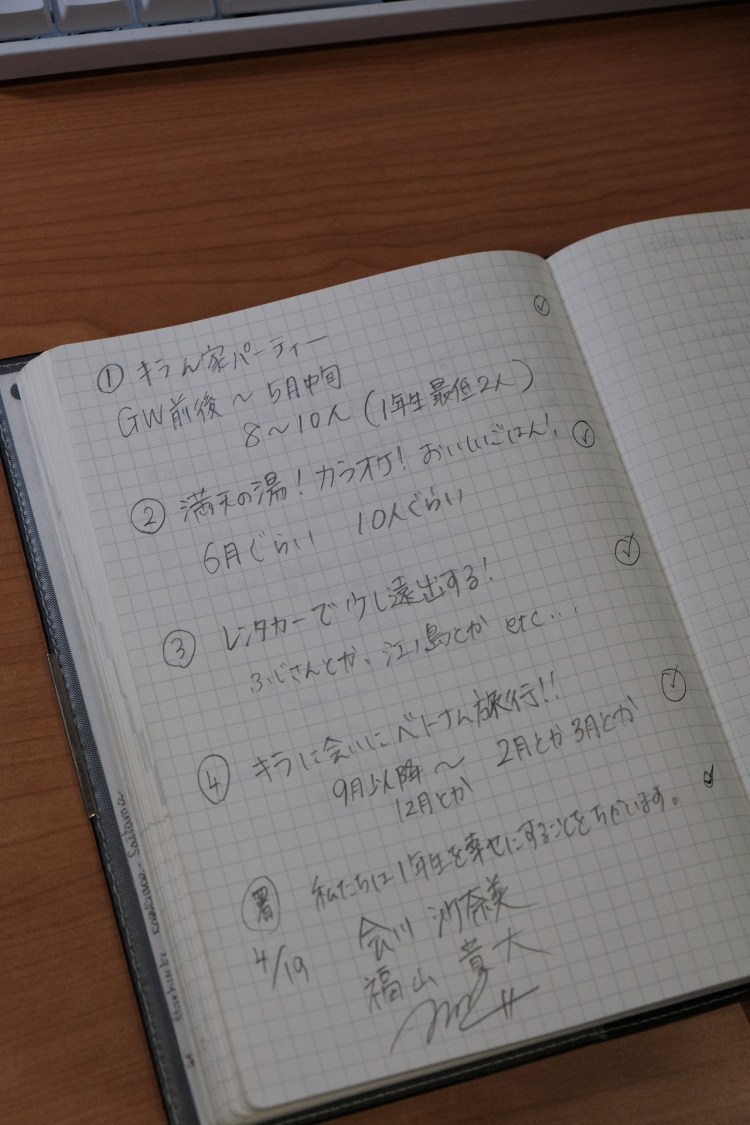 ① キラん家パーティー
GW前後～5月中旬
8～10人(1年生最低2人)
② 満天の湯！カラオケ！おいしいごはん！
6月ぐらい 10人ぐらい
③ レンタカーで少し遠出する！
ふじさんとか、江ノ島とか etc...
④ キラに会いにベトナム旅行!!
9月以降～ 2月とか3月とか
12月とか
署 私たちは1年生を幸せにすることをちかいます。
4/19 会川 沙奈美
福山 貴大